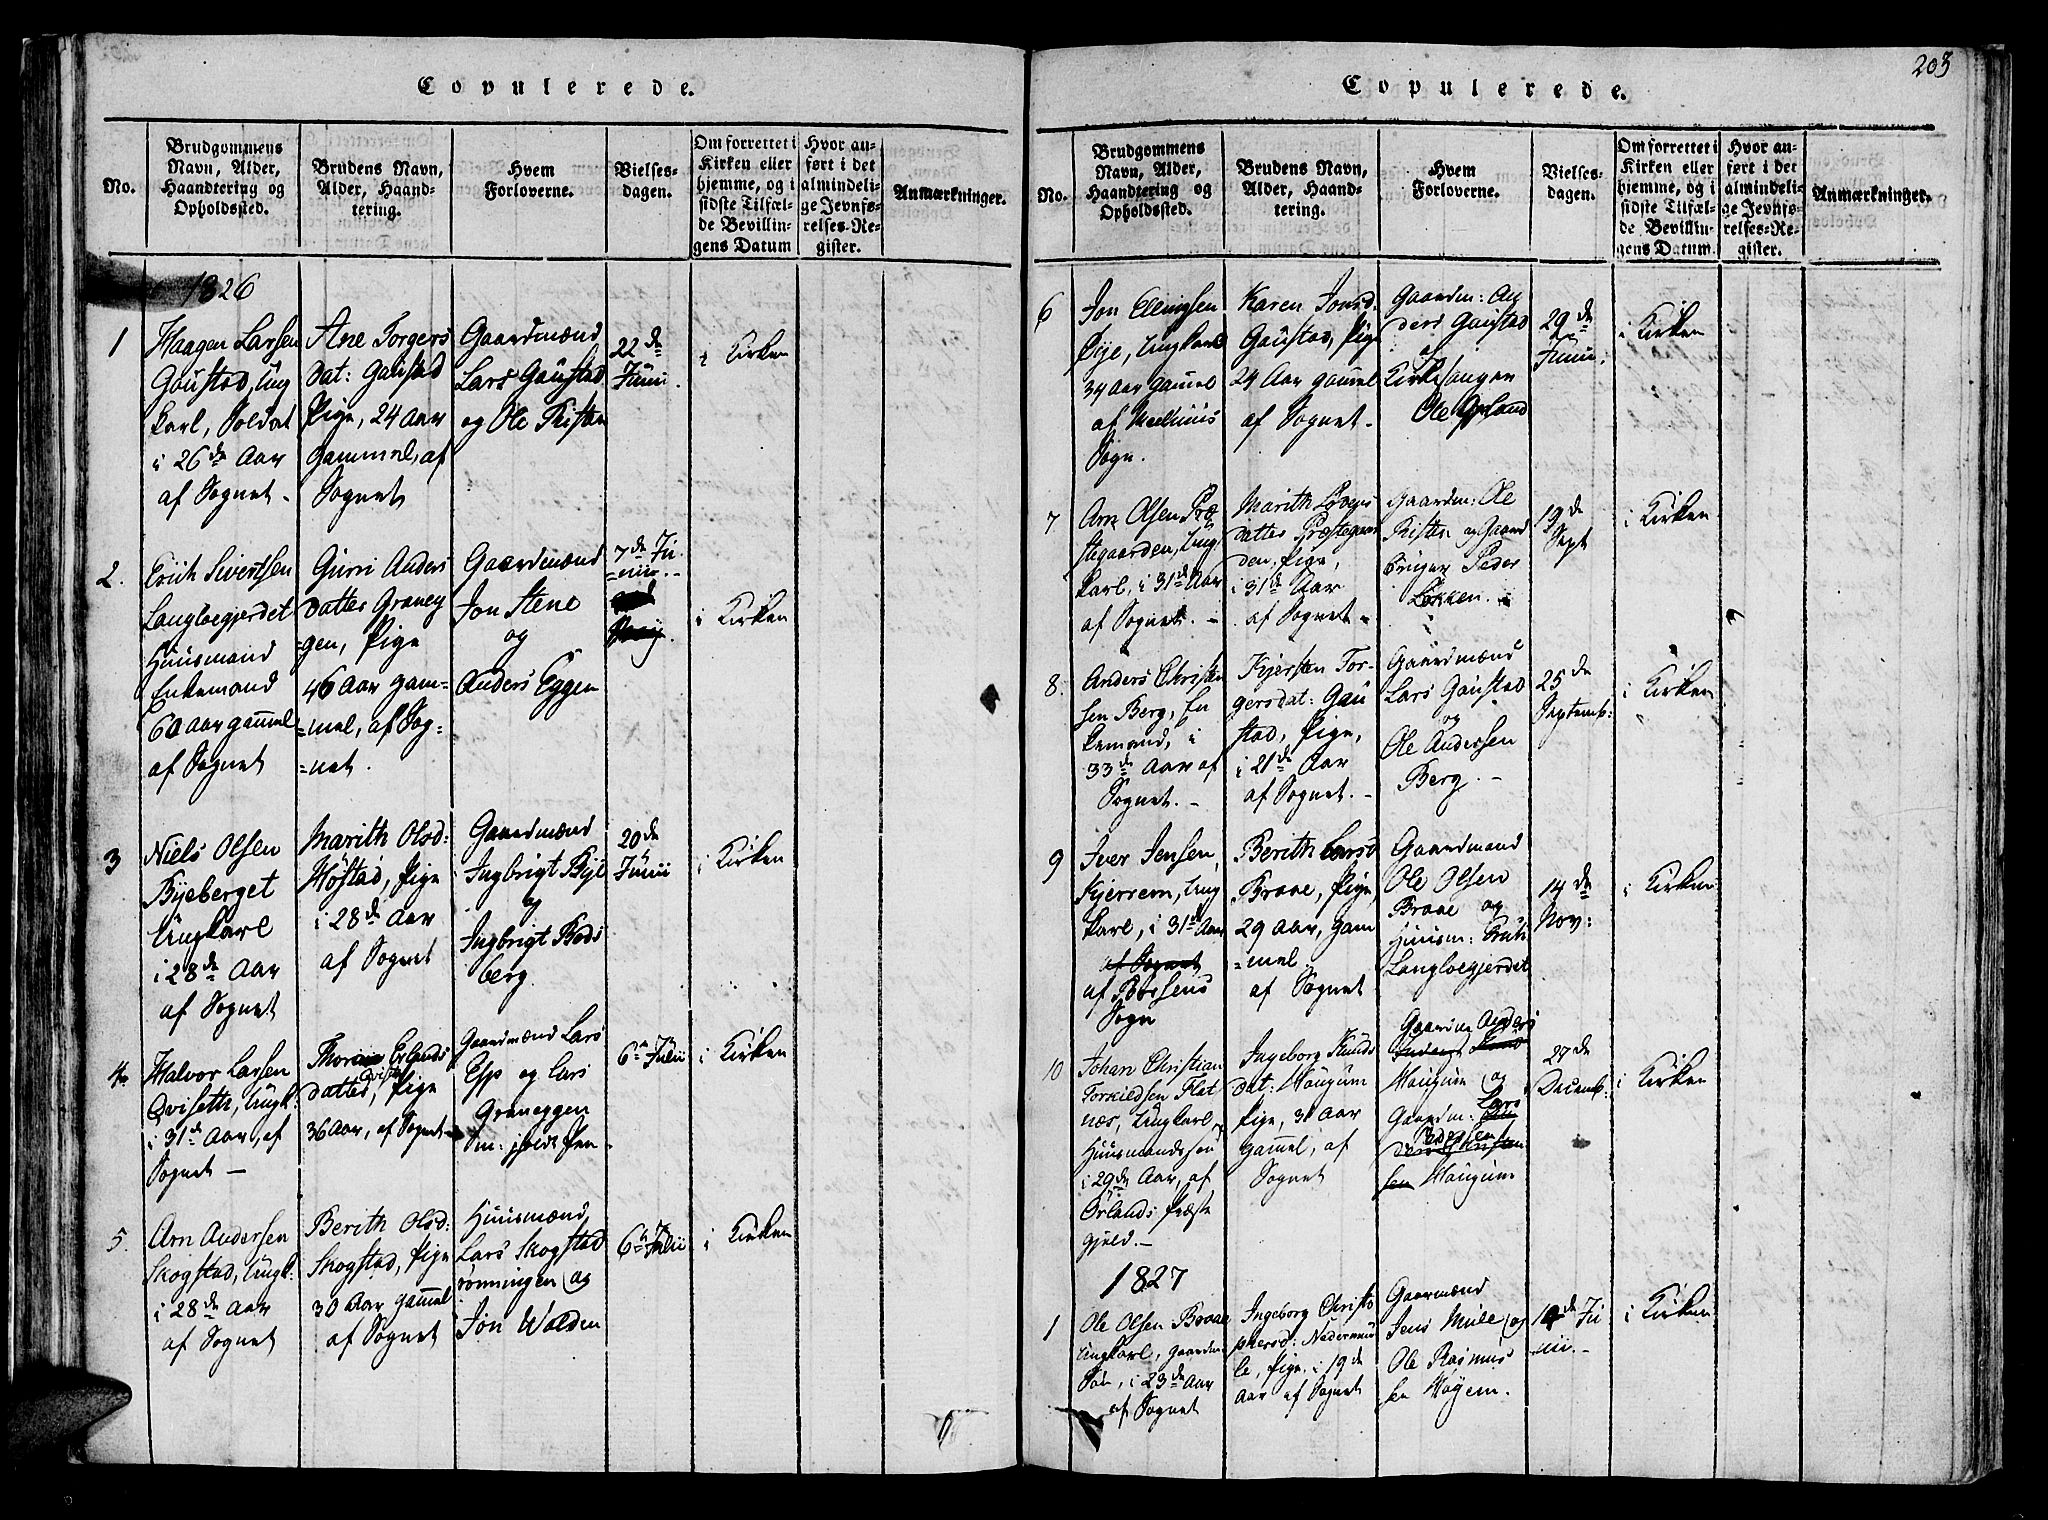 203
Copulerede.
No.
Brudgommens
Navn, Alder,
Haandtering og
Opholdssted.
Brudens Navn,
Alder, Haand-
tering.
Hvem
Forloverne.
Vielses-
dagen.
Om forrettet i
Kirken eller
hjemme, og i
sidste Tilfæl-
de Bevillin-
gens Datum
Hvor an-
ført i det
almindeli-
ge Jevnfø-
relses-Re-
gister.
Anmærkninger.
1826
1
Haagen Larsen
Gaustad, Ung
karl, Soldat
i 26de Aar
af Sognet -
Ane Torgers
dat: Gaustad
Pige, 24 Aar
gammel, af
Sognet
Gaardmænd
Lars Gaustad
og Ole Risten
22de
Junii.
i Kirken
2.
Erich Sivertsen
Langloegjerdet
Huusmand
Enkemand
60 aar gammel
af Sognet
Gurri Anders
datter Graneg
=gen, Pige
46 Aar gam=
=mel, af Sog=
=net.
Gaardmænd
Jon Stene
og
Anders Eggen
7de Ju
=nii.-
i Kirken
3
Niels Olsen
Byeberget
Ungkarl
i 28de Aar
af Sognet
Marith Olsd:
Høstad, Pige
i 28de Aar
af Sognet
Gaardmænd
Ingbrigt Bye
og
Ingbrigt Bods
berg.
20de
Junii
i Kirken
4.
Halvor Larsen
Qviseth, Ungk:
i 31de Aar, af
Sognet -
Erlands
datter, Pige
36 Aar, af Sognet
Gaardmænd Lars
Esp og Lars
Graneggen
6te Julii
i Kirken
5.
Arn Andersen
Skogstad, Ungk:
i 28de Aar
af Sognet
Berith Olsd:
Skogstad, Pige
30 Aar gammel
af Sognet
Huusmænd,
Lars Skogstad
rønningen og
Jon Wolden
6te Julii
i Kirken
Copulerede.
No.
Brudgommens
Navn, Alder,
Haandtering og
Opholdssted.
Brudens Navn,
Alder, Haand-
tering.
Hvem
Forloverne.
Vielses-
dagen.
Om forrettet i
Kirken eller
hjemme, og i
sidste Tilfæl-
de Bevillin-
gens Datum.
Hvor an-
ført i det
almindeli-
ge Jevnfø-
relses-Re-
gister.
Anmærkninger.
6
Jon Ellingsen
Øye, Ungkarl
34 Aar gammel
af Melhuus
Sogn.
Karen Jonsd:
Gaustad, Pige
24 Aar gammel
af Sognet -
Gaardm: An
ders Gaustad
og
Kirkesanger
Ole
29de
Junii.
i Kirken
7
Arn Olsen Præ
stegaarden, Ung
karl, i 31de Aar
af Sognet. -
Marith
datter Præstegaar
den, Pige,
i 31de Aar
af Sognet -
Gaardm: Ole
Risten og Gaard
bruger Peder
Løkken.
19de
Sept
i Kirken
8.
Anders Christen
sen Berg, En
kemand, i
33de Aar af
Sognet. -
Kjersten Tor-
gersdat: Gau
stad, Pige,
i 21de Aar
af Sognet. -
Gaardmænd
Lars Gaustad
og
Ole Andersen
Berg. -
25de
Septemb:
i Kirken
9
Iver Jensen,
Kjerrem, Ung
karl, i 31de Aar
af Sognet
af Børsens
Sogn
Berith Larsd
Braae, Pige,
29 Aar, gam
=mel.
af Sognet
Gaardmand
Ole Olsen
Braae og
Huusm:
Langloegjerdet
14de
Nov:
i Kirken
10
Johan Christian
Torkildsen Flat
næs, Ungkarl,
Huusmandssøn
i 29de Aar, af
Ørlands Præste
gjeld. -
Ingeborg Knuds
dat: Haugum
Pige, 31 Aar
gammel, af
Sognet
Anders
Haugum og
Gaardm: Lars
Pedersen
sen Haugum
27de
Decemb:
i Kirken
1827
1
Ole Olsen Braae
Ungkarl, Gaardm.
Søn, i 23de Aar
af Sognet
Ingeborg Christo
phersd: Nedermuu
le, Pige, i 19de
Aar af Sognet
Gaarmænd
Jens Mule og
Ole Rasmus
sen Høyem.
Ju
nii. -
i Kirken